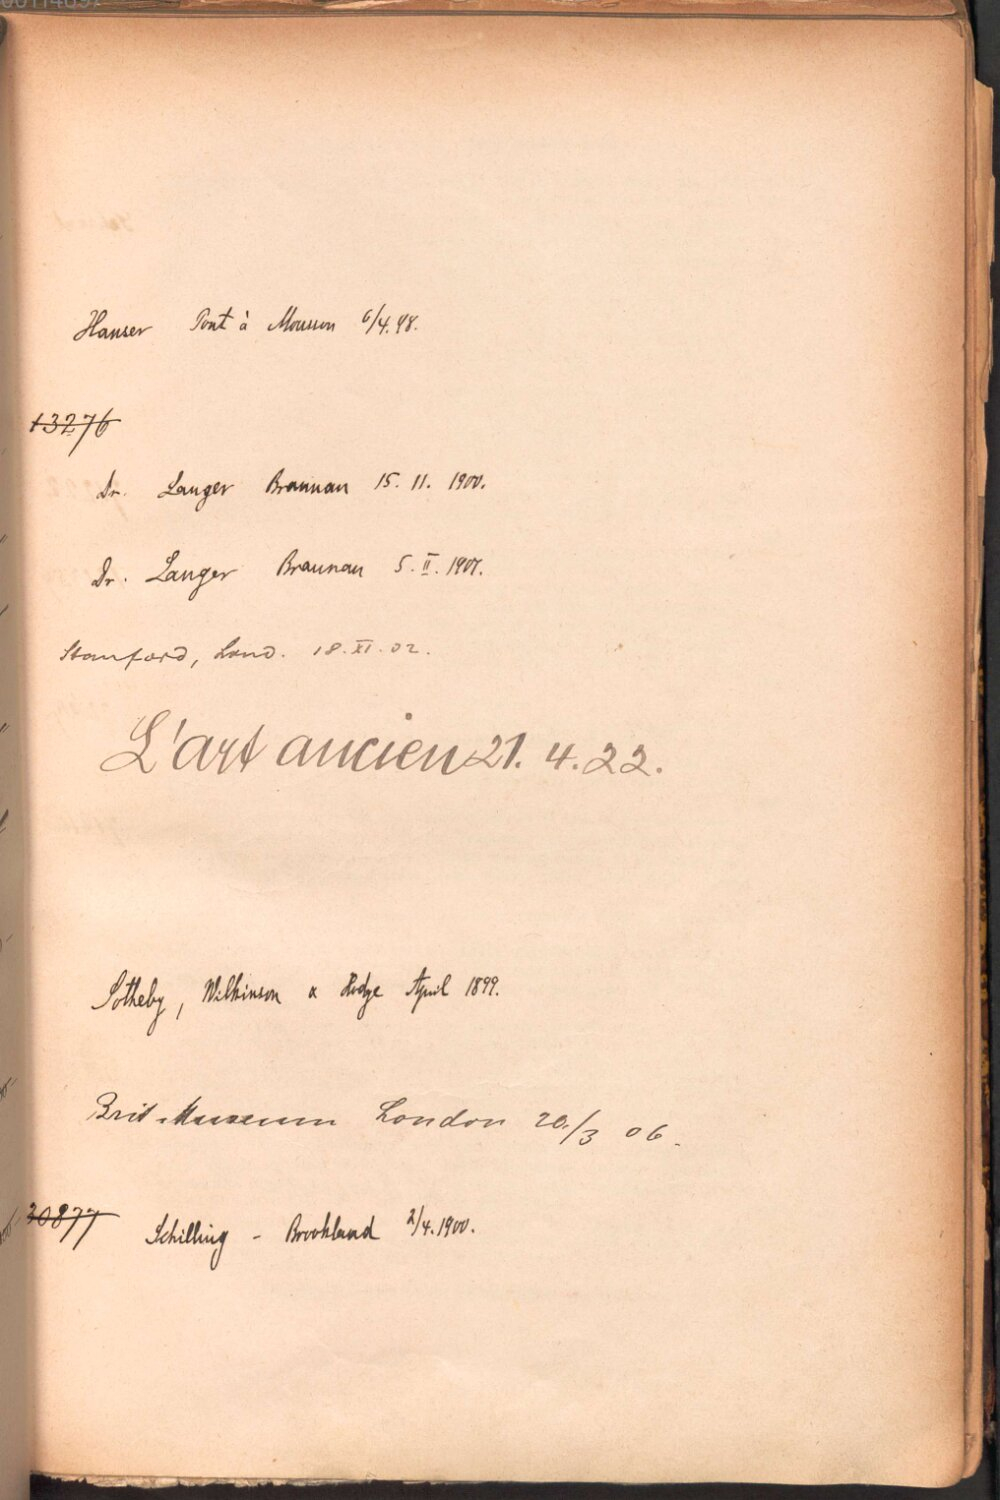 Hanser Pont à Mousson 6/4.98.
13276
Dr. Langer Braunau 15. 11. 1900.
Dr. Langer Braunau 5. II. 1907.
Stanford, Lond. 18. XI. 02.
L'art ancien 21. 4. 22.
Sotheby, Wilkinson & Hodge April 1899.
Brit. Museum London 20./3 06.
30877 Schilling - Brookland 2/4. 1900.